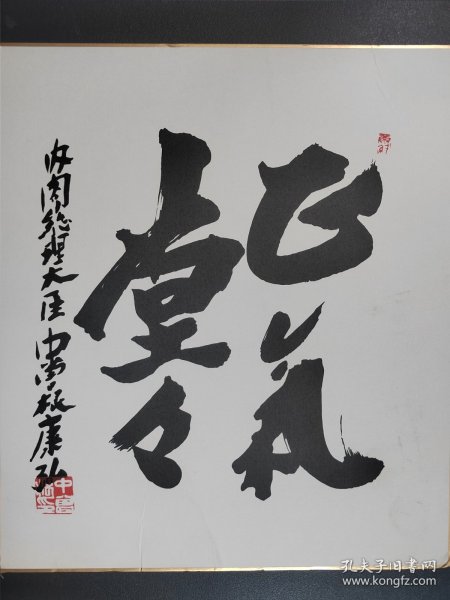 正氣
堂々
内閣総理大臣 中曽根康弘
孔夫子旧书网
www.kongfz.com